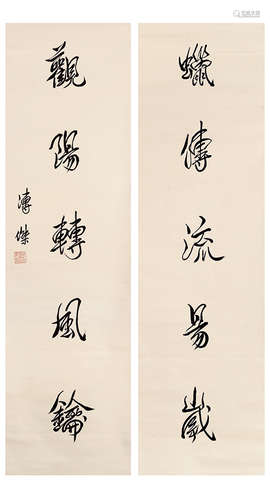 蠟傳流易歲
觀陽轉風鑰
溥傑